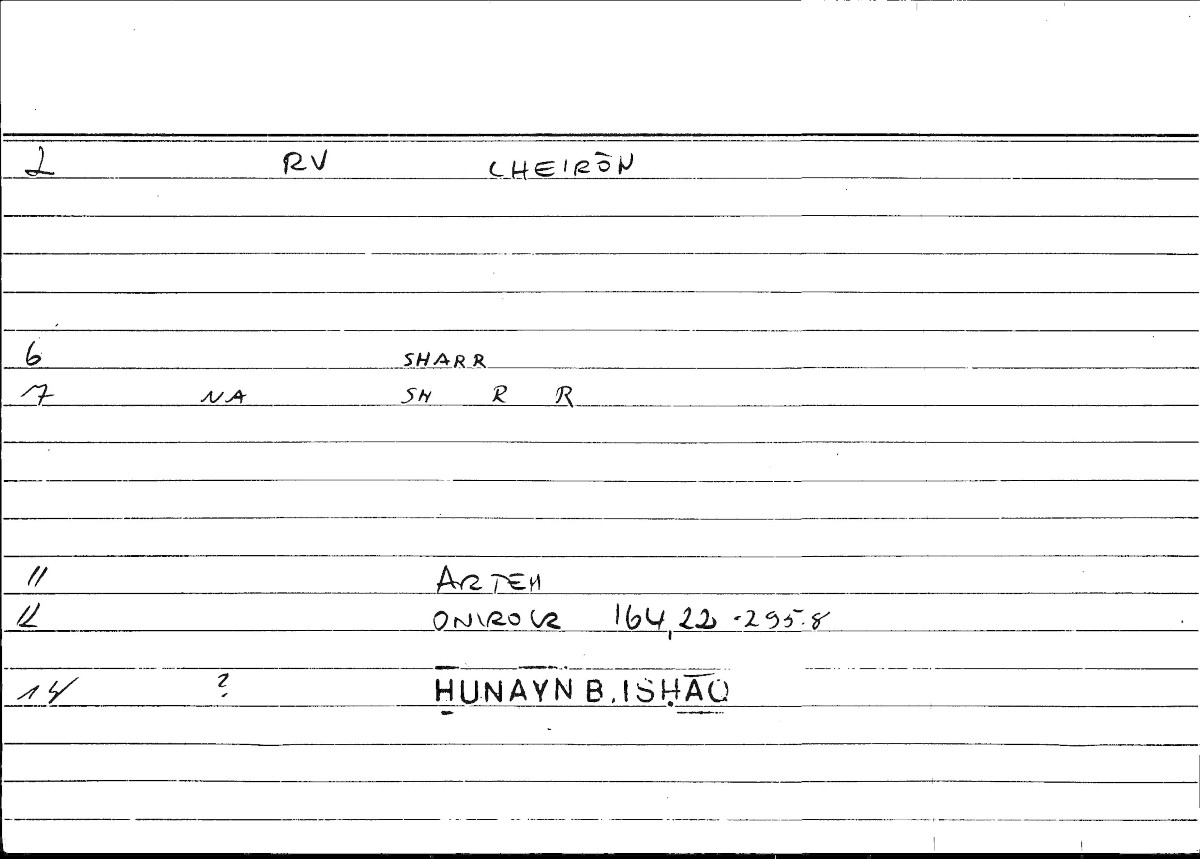 2 RV CHEIRŌN
6 SHARR
7 NA SH R R
11 ARTEM
12 ONIROCR 164,22-295.8
14 ? ḤUNAYN B. ISḤĀQ